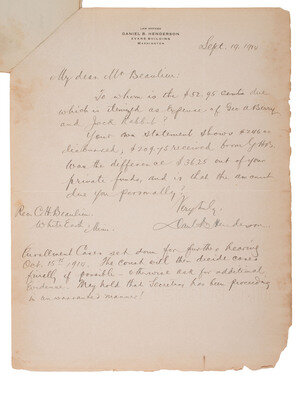 LAW OFFICES
DANIEL B. HENDERSON
EVANS BUILDING
WASHINGTON
Sept. 19, 1910
My dear Mr Beaulieu:
To whom is the $52.95 cents due
which is itemized as expense of Geo A Berry
and Jack Rabbit?
Your own statement shows $246.00
disbursed, $209.75 received from G.H.B.
Was the difference $36.25 out of your
private funds, and is that the amount
due you personally?
Very truly,
Danl B Henderson.
Rev. C H Beaulieu
White Earth,
Minn.
Enrollment Cases set down for further hearing
Oct. 15th 1910. The court will then decide cases
finally if possible - otherwise ask for additional
evidence. May hold that Secretary has been proceeding
in an unwarranted manner!